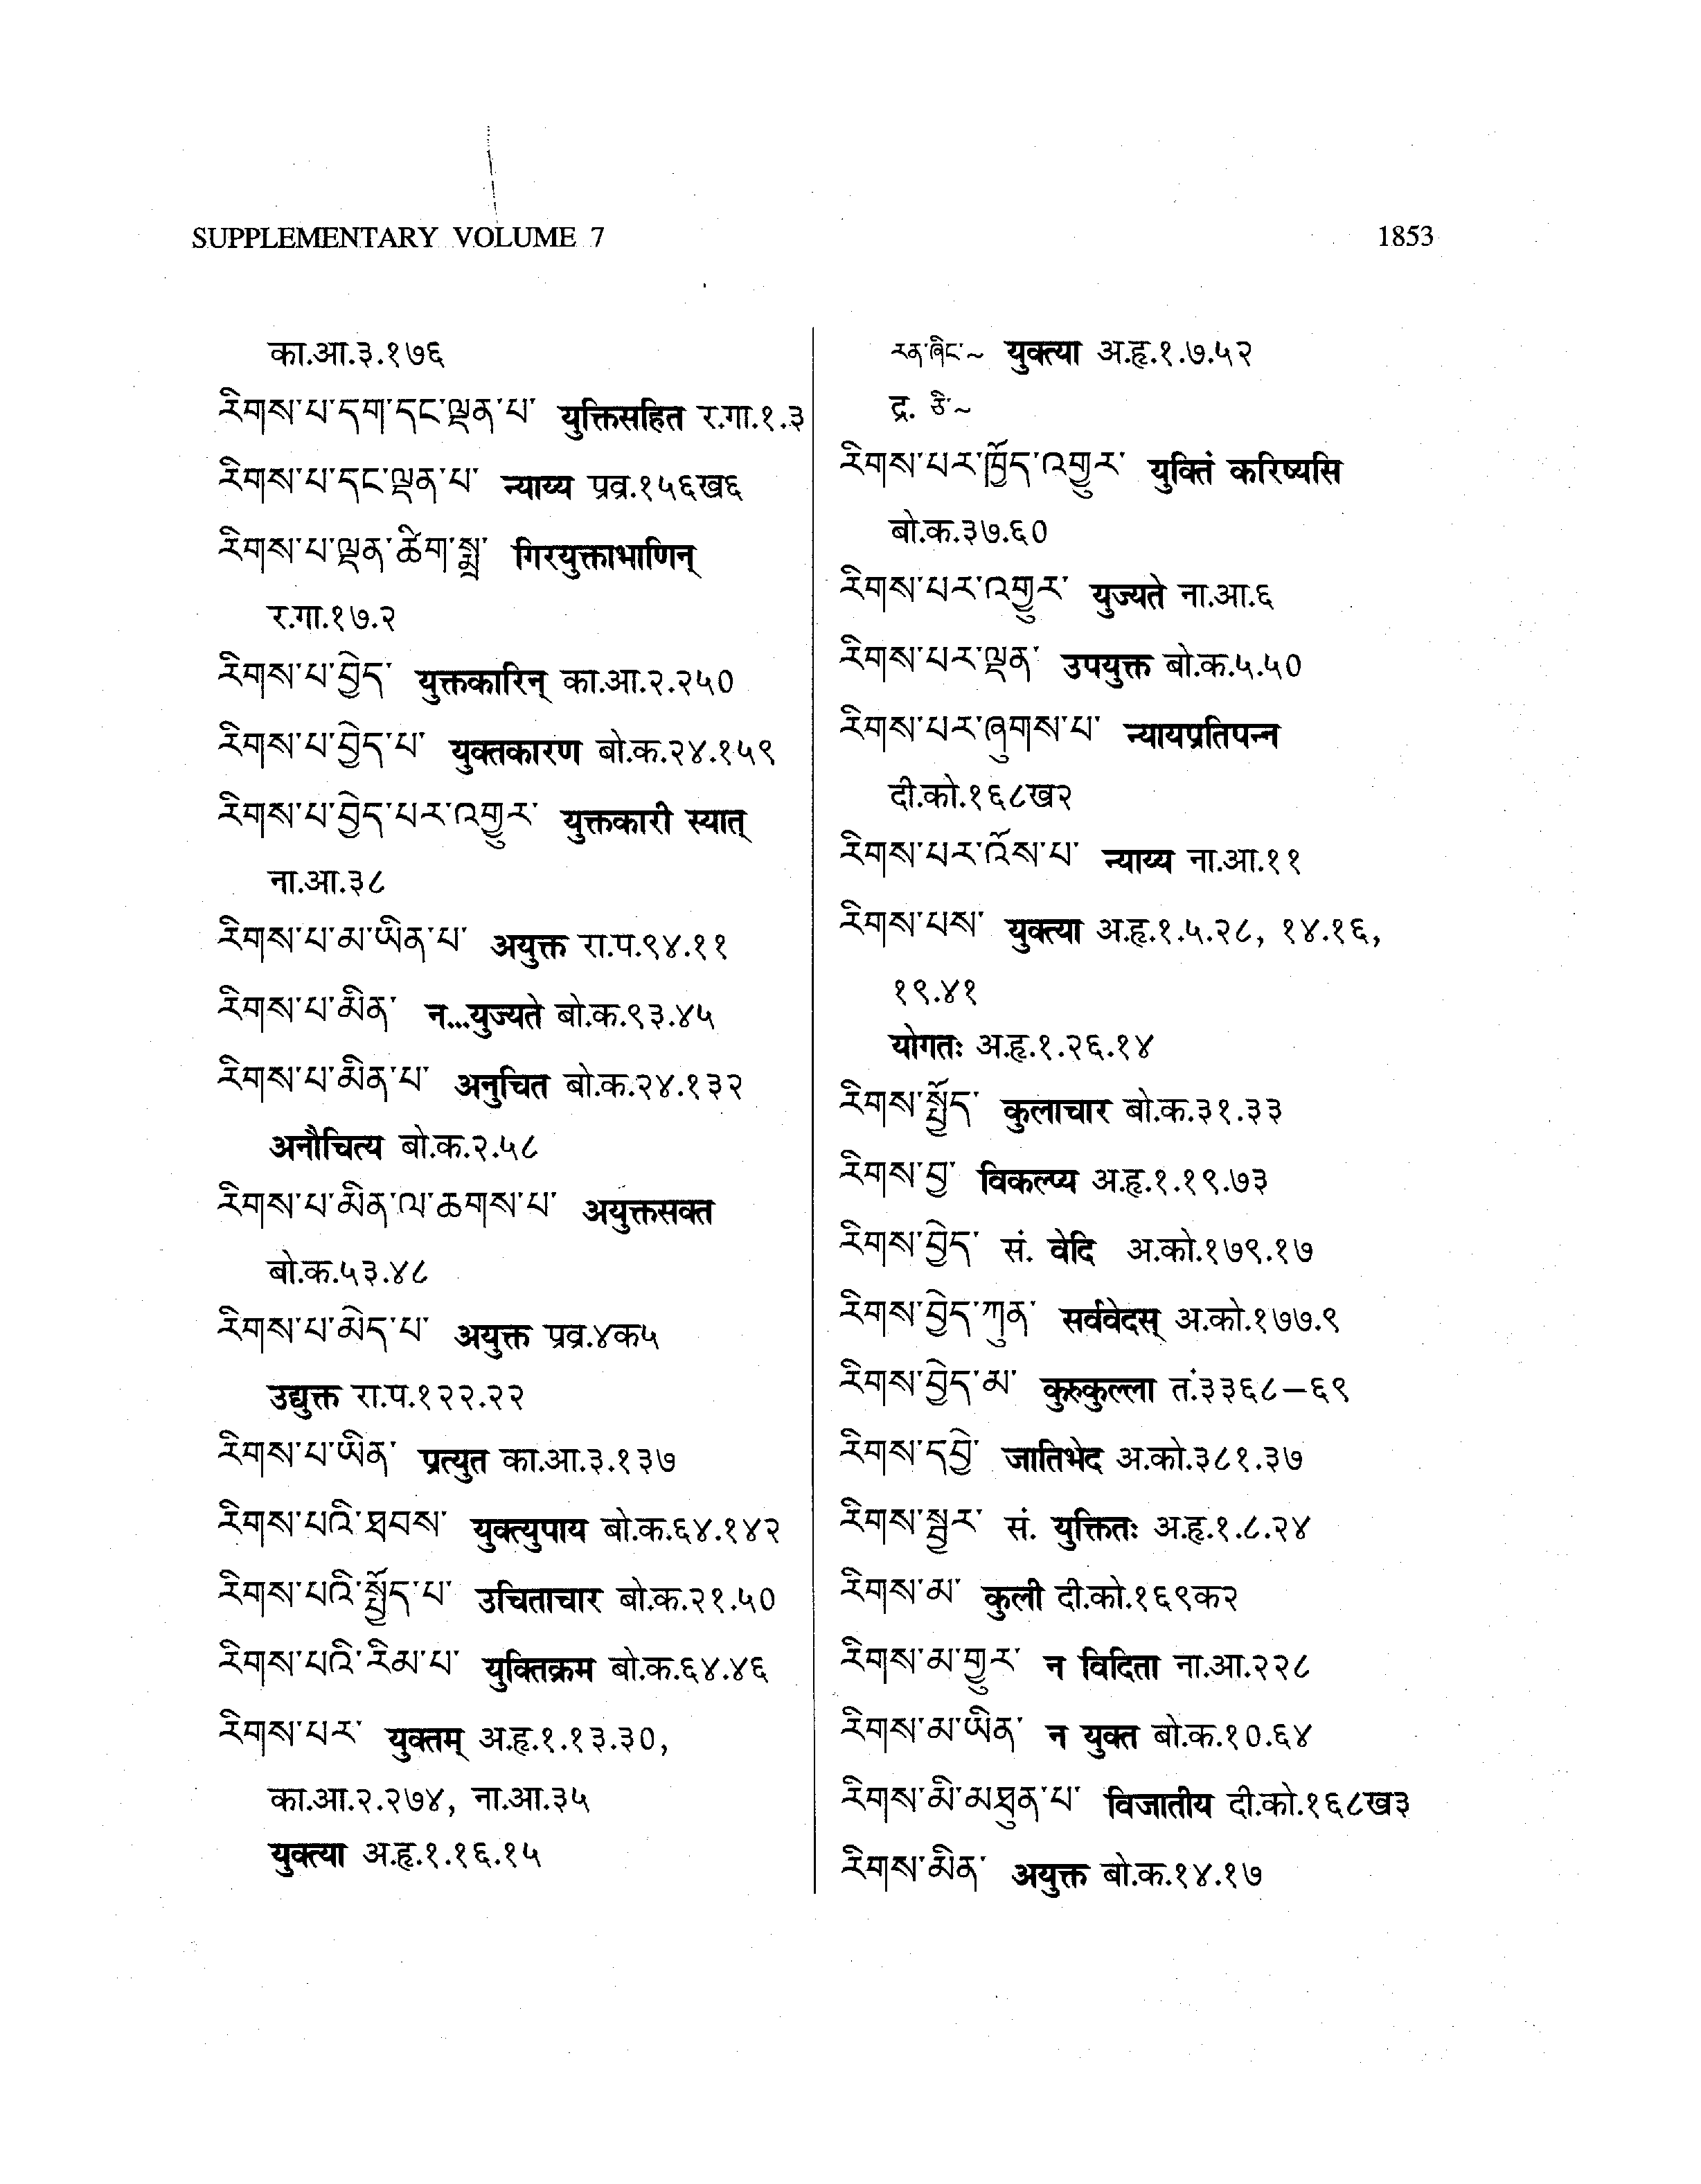 SUPPLEMENTARY VOLUME 7
1853
का.आ.३.१७६
རིགས་པ་དག་དང་ལྡན་པ་ युक्तिसहित र.गा.१.३
རིགས་པ་དང་ལྡན་པ་ न्याय्य प्रव्र.१५६ख६
རིགས་པ་ལྡན་ཚིག་སྨྲ་ गिरयुक्ताभाणिन्
र.गा.१७.२
རིགས་པ་བྱེད་ युक्तकारिन् का.आ.२.२५0
རིགས་པ་བྱེད་པ་ युक्तकारण बो.क.२४.१५९
རིགས་པ་བྱེད་པར་འགྱུར་ युक्तकारी स्यात्
ना.आ.३८
རིགས་པ་མ་ཡིན་པ་ अयुक्त रा.प.९४.११
རིགས་པ་མིན་ न...युज्यते बो.क.९३.४५
རིགས་པ་མིན་པ་ अनुचित बो.क.२४.१३२
अनौचित्य बो.क.२.५८
རིགས་པ་མིན་ལ་ཆགས་པ་ अयुक्तसक्त
बो.क.५३.४८
རིགས་པ་མེད་པ་ अयुक्त प्रव्र.४क५
उद्युक्त रा.प.१२२.२२
རིགས་པ་ཡིན་ प्रत्युत का.आ.३.१३७
རིགས་པའི་ཐབས་ युक्त्युपाय बो.क.६४.१४२
རིགས་པའི་སྤྱོད་པ་ उचिताचार बो.क.२१.५0
རིགས་པའི་རིམ་པ་ युक्तिक्रम बो.क.६४.४६
རིགས་པར་ युक्तम् अ.हृ.१.१३.३0,
का.आ.२.२७४, ना.आ.३५
युक्त्या अ.हृ.१.१६.१५
རན་ཞིང་~ युक्त्या अ.हृ.१.७.५२
द्र. ཅི་~
རིགས་པར་ཁྱོད་འགྱུར་ युक्तिं करिष्यसि
बो.क.३७.६0
རིགས་པར་འགྱུར་ युज्यते ना.आ.६
རིགས་པར་ལྡན་ उपयुक्त बो.क.५.५0
རིགས་པར་ཞུགས་པ་ न्यायप्रतिपन्न
दी.को.१६८ख२
རིགས་པར་འོས་པ་ न्याय्य ना.आ.११
རིགས་པས་ युक्त्या अ.हृ.१.५.२८, १४.१६,
१९.४१
योगतः अ.हृ.१.२६.१४
རིགས་སྤྱོད་ कुलाचार बो.क.३१.३३
རིགས་བྱ་ विकल्प्य अ.हृ.१.१९.७३
རིགས་བྱེད་ सं. वेदि अ.को.१७९.१७
རིགས་བྱེད་ཀུན་ सर्ववेदस् अ.को.१७७.९
རིགས་བྱེད་མ་ कुरुकुल्ला तं.३३६८–६९
རིགས་དབྱེ་ जातिभेद अ.को.३८१.३७
རིགས་སྦྱར་ सं. युक्तितः अ.हृ.१.८.२४
རིགས་མ་ कुली दी.को.१६९क२
རིགས་མ་གྱུར་ न विदिता ना.आ.२२८
རིགས་མ་ཡིན་ न युक्त बो.क.१0.६४
རིགས་མི་མཐུན་པ་ विजातीय दी.को.१६८ख३
རིགས་མིན་ अयुक्त बो.क.१४.१७